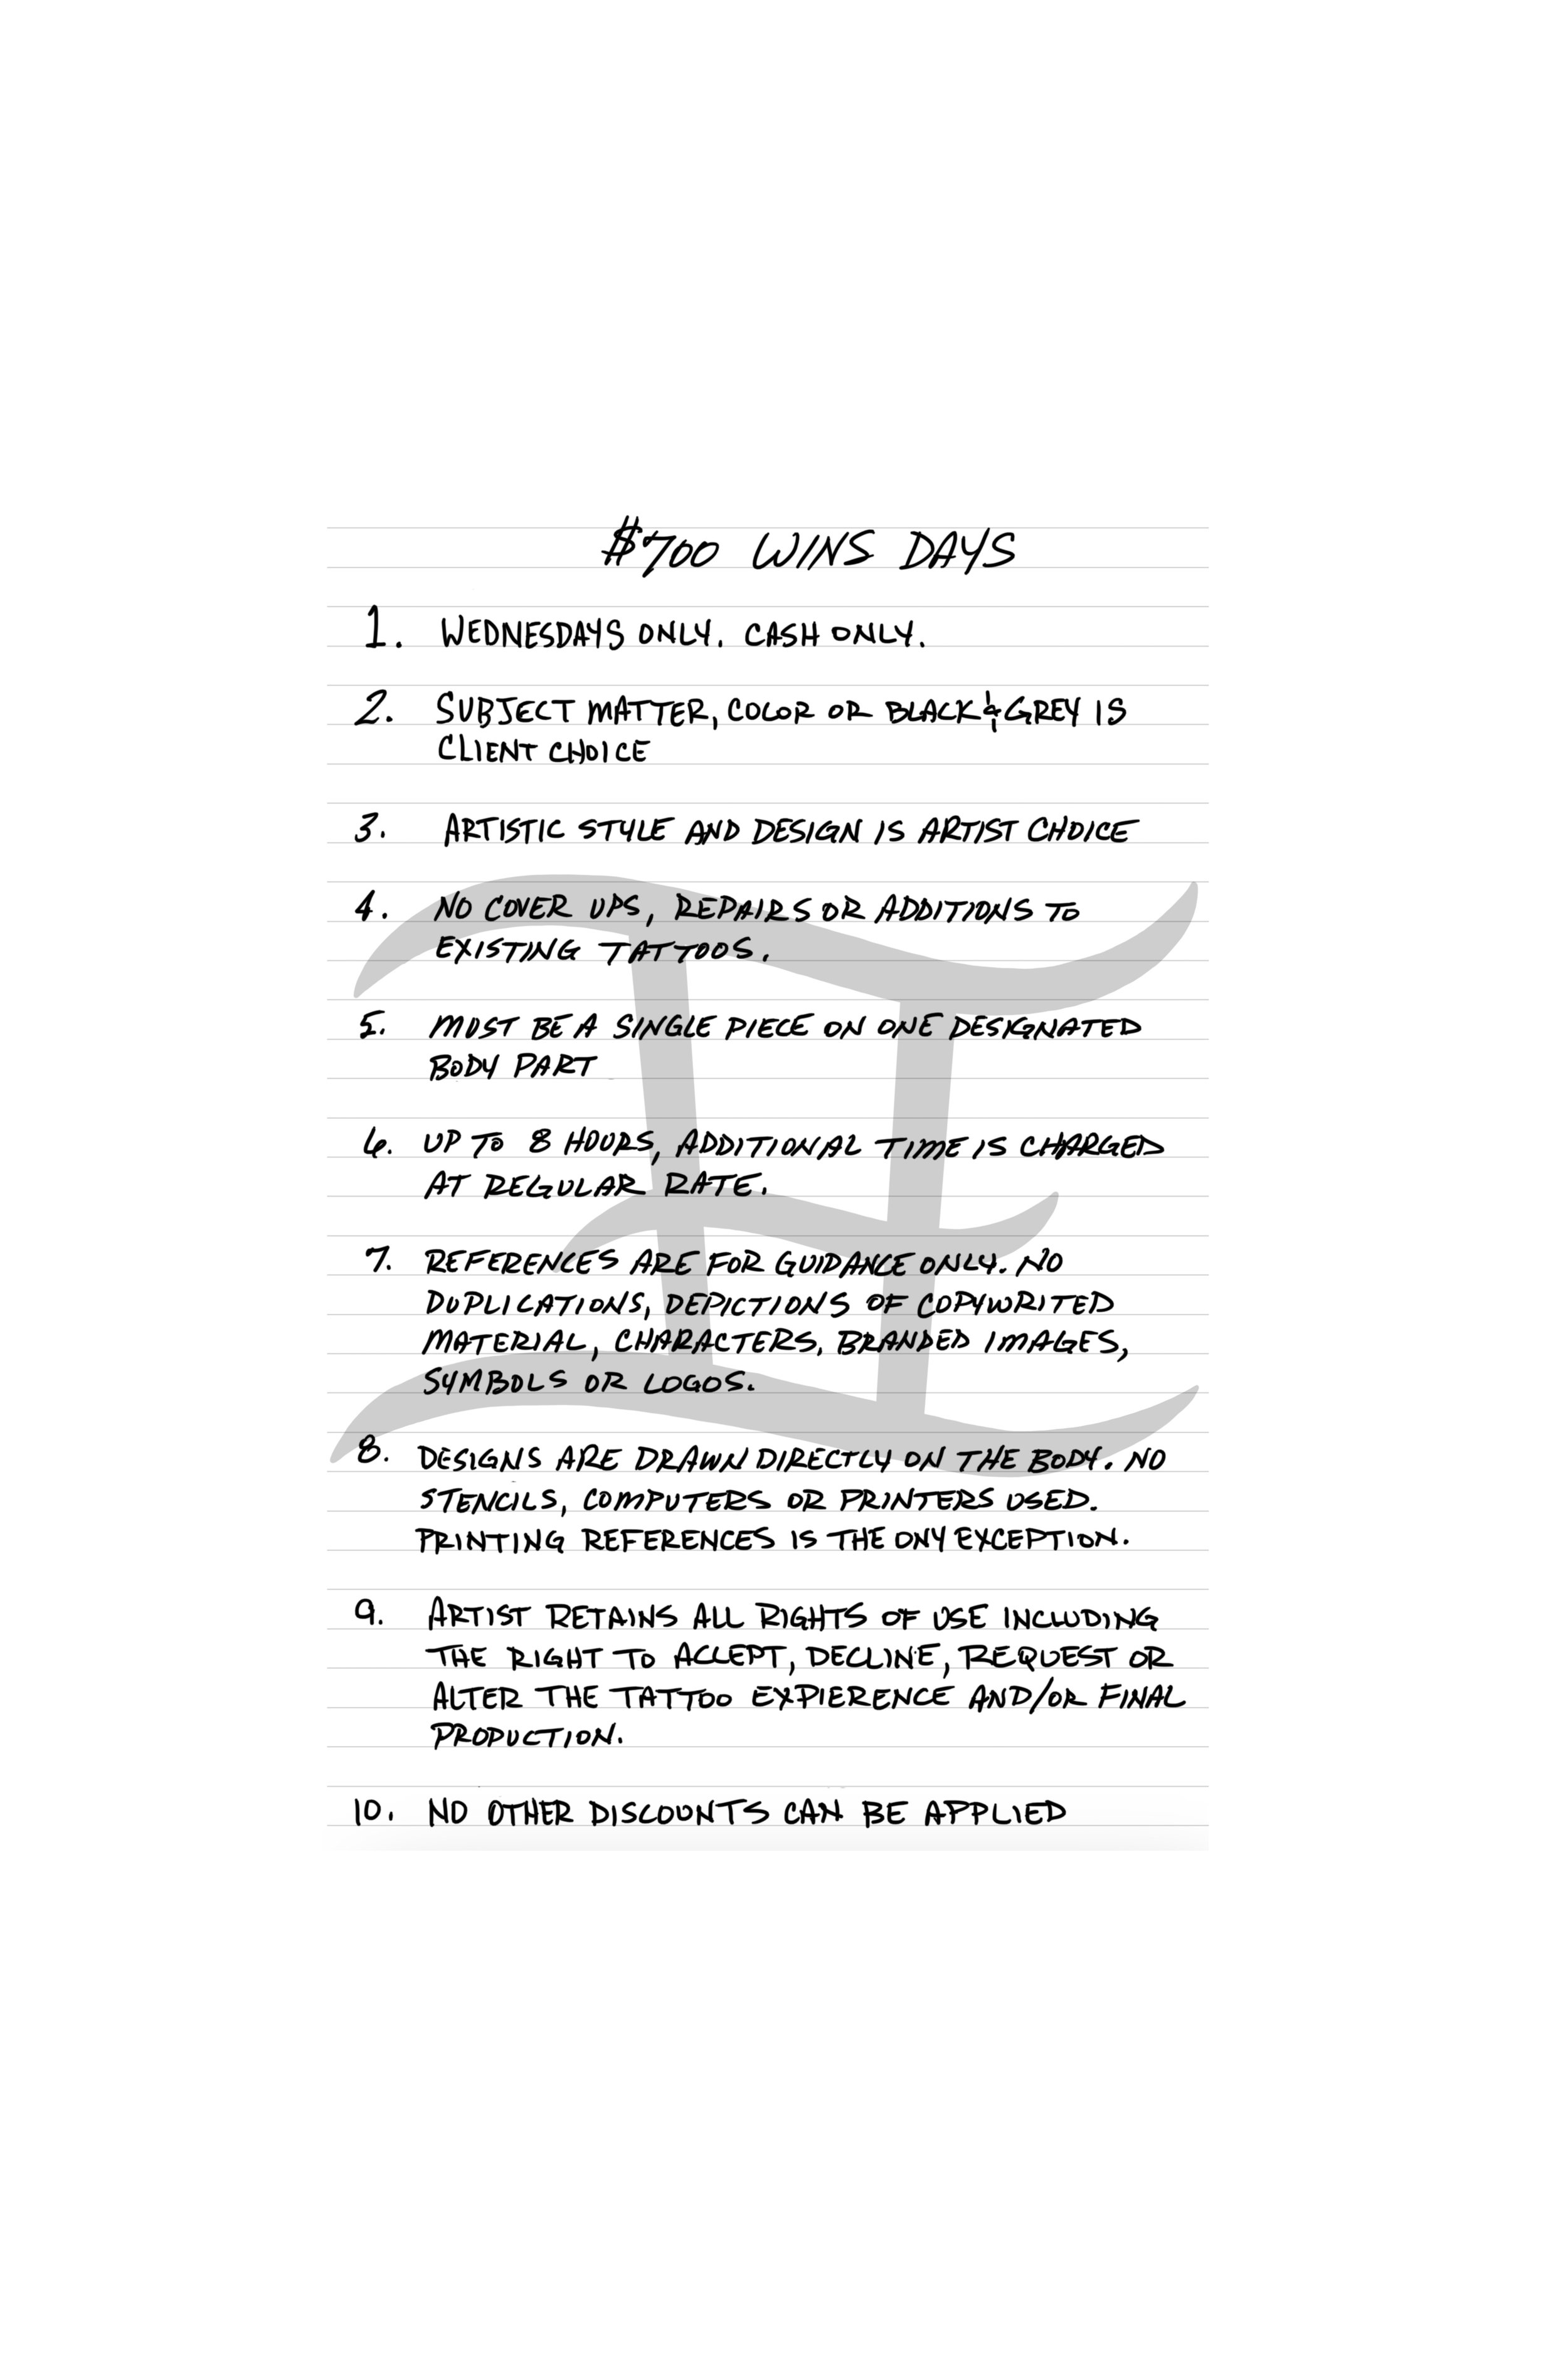 $700 WINS DAYS
1. WEDNESDAYS ONLY. CASH ONLY.
2. SUBJECT MATTER, COLOR OR BLACK & GREY IS
CLIENT CHOICE
3. ARTISTIC STYLE AND DESIGN IS ARTIST CHOICE
4. NO COVER UPS, REPAIRS OR ADDITIONS TO
EXISTING TATTOOS.
5. MUST BE A SINGLE PIECE ON ONE DESIGNATED
BODY PART
6. UP TO 8 HOURS, ADDITIONAL TIME IS CHARGED
AT REGULAR RATE.
7. REFERENCES ARE FOR GUIDANCE ONLY. NO
DUPLICATIONS, DEPICTIONS OF COPYWRITED
MATERIAL, CHARACTERS, BRANDED IMAGES,
SYMBOLS OR LOGOS.
8. DESIGNS ARE DRAWN DIRECTLY ON THE BODY. NO
STENCILS, COMPUTERS OR PRINTERS USED.
PRINTING REFERENCES IS THE ONY EXCEPTION.
9. ARTIST RETAINS ALL RIGHTS OF USE INCLUDING
THE RIGHT TO ACCEPT, DECLINE, REQUEST OR
ALTER THE TATTOO EXPIERENCE AND/OR FINAL
PRODUCTION.
10. NO OTHER DISCOUNTS CAN BE APPLIED